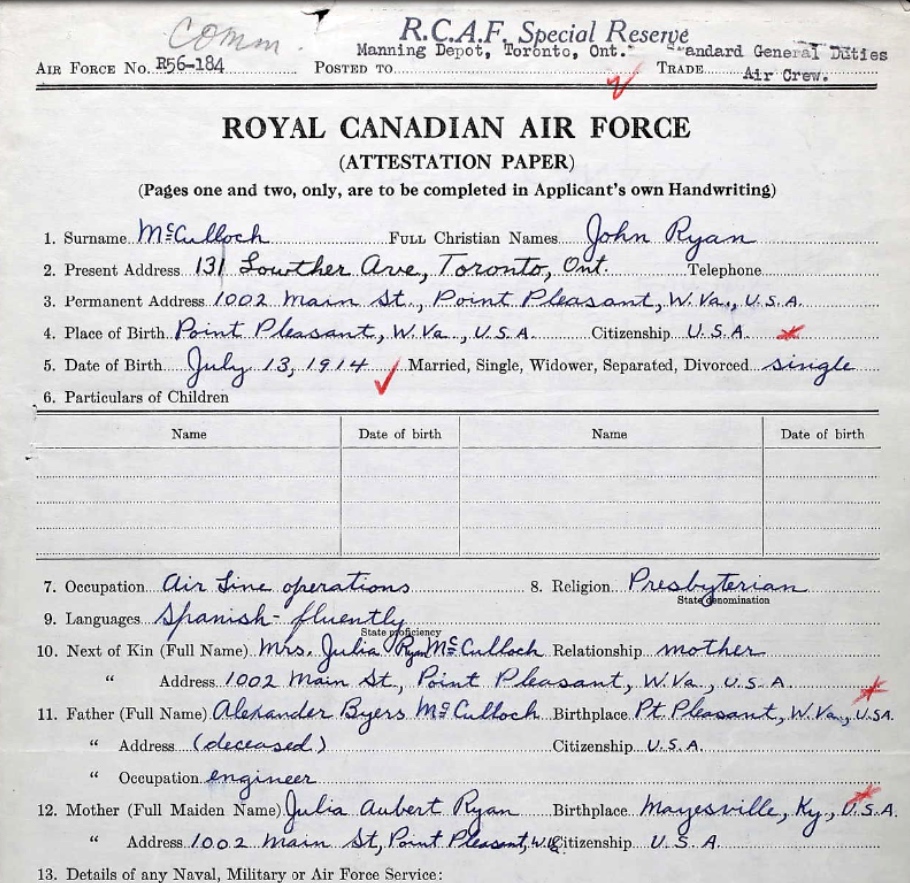 comm.
R.C.A.F. Special Reserve
Manning Depot, Toronto, Ont. Standard General Duties
AIR FORCE No. R56-184 POSTED TO TRADE Air Crew.
ROYAL CANADIAN AIR FORCE
(ATTESTATION PAPER)
(Pages one and two, only, are to be completed in Applicant's own Handwriting)
1. Surname McCulloch FULL Christian Names John Ryan
2. Present Address 131 Lowther Ave, Toronto, Ont. Telephone
3. Permanent Address 1002 Main St., Point Pleasant, W.Va., U.S.A.
4. Place of Birth Point Pleasant, W.Va., U.S.A. Citizenship U.S.A.
5. Date of Birth July 13, 1914 Married, Single, Widower, Separated, Divorced single
6. Particulars of Children
Name Date of birth Name Date of birth
7. Occupation Air Line operations 8. Religion Presbyterian
State denomination
9. Languages Spanish - fluently
State proficiency
10. Next of Kin (Full Name) Mrs. Julia Ryan McCulloch Relationship mother
" Address 1002 Main St., Point Pleasant, W.Va., U.S.A.
11. Father (Full Name) Alexander Byers McCulloch Birthplace Pt. Pleasant, W.Va., U.S.A.
" Address (deceased) Citizenship U.S.A.
" Occupation engineer
12. Mother (Full Maiden Name) Julia Aubert Ryan Birthplace Mayesville, Ky., U.S.A.
" Address 1002 Main St, Point Pleasant, W.Va. Citizenship U.S.A.
13. Details of any Naval, Military or Air Force Service: